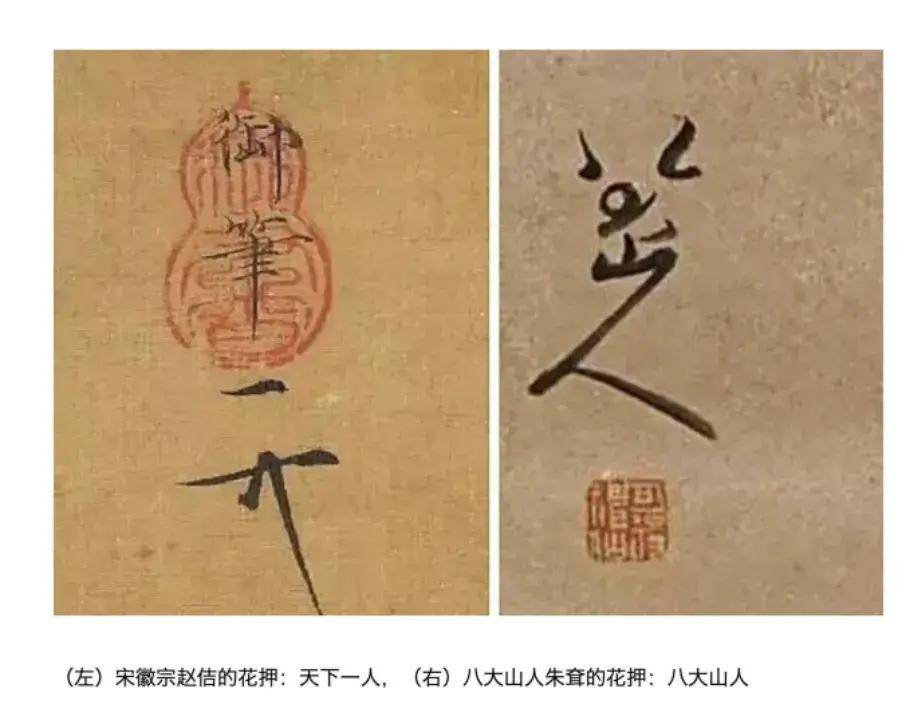 御筆
八大山人
（左）宋徽宗赵佶的花押：天下一人，（右）八大山人朱耷的花押：八大山人